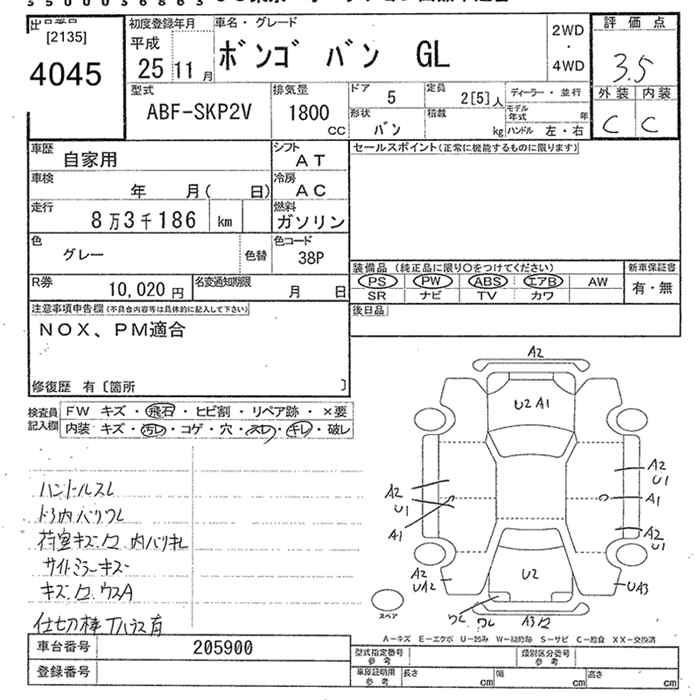 出品番号
[2135]
4045
初度登録年月
平成
25 11 月
車名・グレード
ボンゴ バン GL
2WD
・
4WD
評価点
3.5
外装 内装
C C
型式
ABF-SKP2V
排気量
1800
CC
ドア
5
定員
2[5]人
ディーラー・並行
形状
バン
積載
kg
モデル年式 年
ハンドル 左・右
車歴
自家用
シフト
AT
セールスポイント(正常に機能するものに限ります)
車検
年 月( 日)
冷房
AC
走行
8万3千186 km
燃料
ガソリン
色
グレー
色替
色コード
38P
装備品(純正品に限り○をつけてください)
PS PW ABS エアB AW
SR ナビ TV カワ
新車保証書
有・無
R券
10,020 円
名変通知期限
月 日
後日品
注意事項申告欄(不具合内容等は具体的に記入して下さい)
NOX、PM適合
修復歴 有〔箇所 〕
検査員記入欄
FW キズ・飛石・ヒビ割・リペア跡・×要
内装 キズ・汚レ・コゲ・穴・スレ・キレ・破レ
ハンドルスレ
ドア内バリワレ
荷室キズ凹 内バリキレ
サイドミラーキズ
キズ凹 ウスA
A2
U2 A1
A2
U1
A1
A2
U1
A1
A2
U1
A2
UA2
U2
UA3
ワレ ワレ
スペア
A-キズ E-エクボ U-凹み W-補修跡 S-サビ C-腐食 XX-交換済
車台番号
205900
登録番号
型式指定番号
参考
類別区分番号
参考
車庫証明用
参考
長さ cm
幅 cm
高さ cm